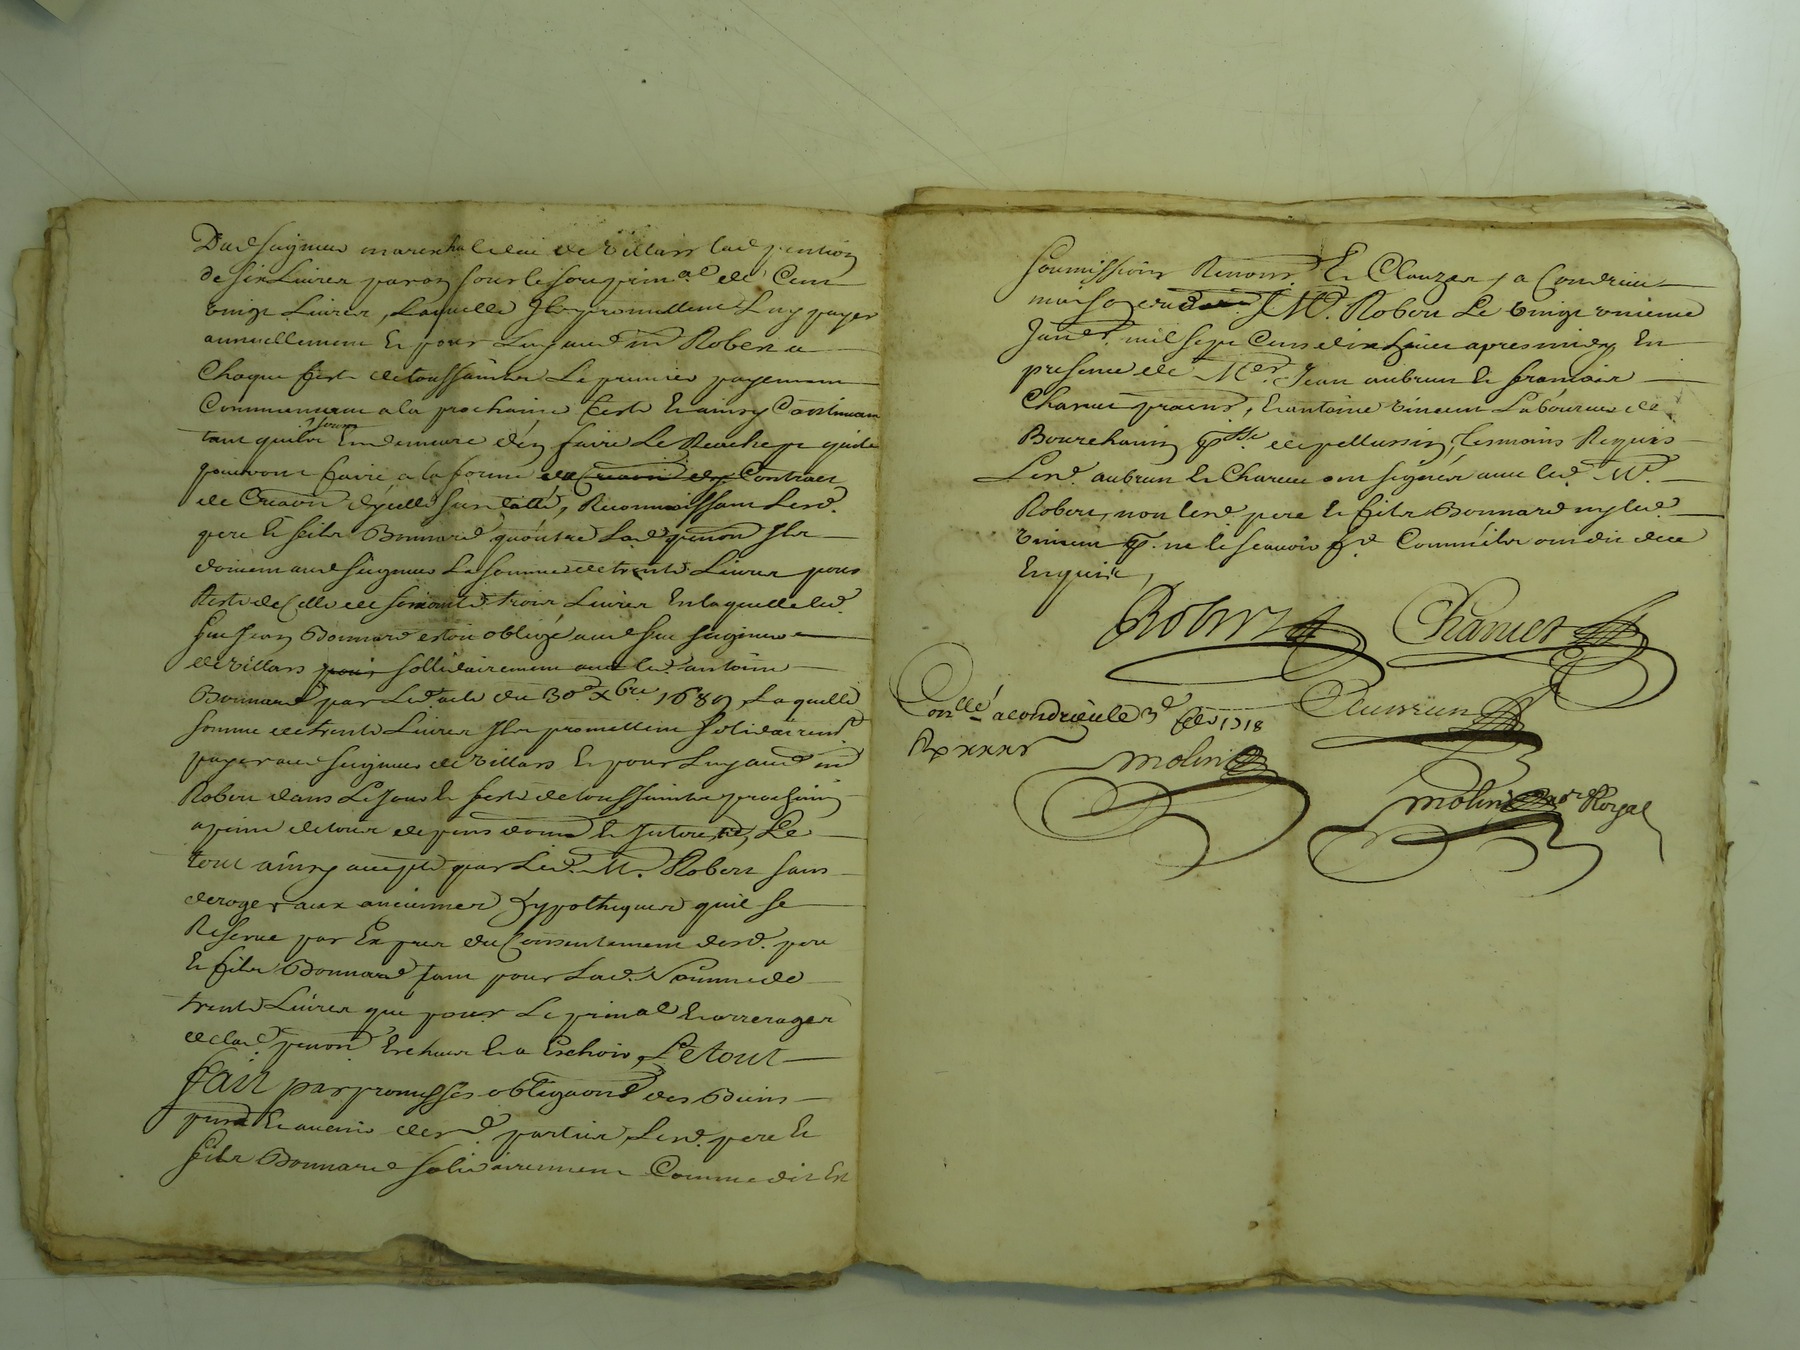 Dud seigneur mareschal duc de Villars lad pention
de six Livres par an sous le sort prin.al de Cent
vingt Livres, Laquelle Ils promettent Luy payer
annuellement Et pour Luy aud m.e Robert a
Chaque feste de toussaintes Le premier payement
Commenceant a la prochaine feste Et ainsy Continuant
tant quils seront En demeure d'en faire Le Rachept quils
pouront faire a la forme Contract
de Creaon dicelle sus datté, Reconnoissant Lesd.
pere Et fils Bonnard qu'outre Lad. penon Ils
doivent aud seigneur La somme de trente Livres pour
Reste de Celle de soixante trois Livres En laquelle led.
feu Jean Bonnard estoit obligé aud feu seigneur
de Villars pour sollidairement avec led. antoine
Bonnard par Led. acte du 30e Xbre 1689, Laquelle
somme de trente Livres Ils promettent solidairemt
payer aud seigneur de Villars Et pour Luy aud me
Robert dans Le Jour Et feste de toussaintes prochain
a peine de tous depens dom Et Interets, Le
tout ainsy accepté par Led. M. Robert sans
deroger aux anciennes hypotheques quil se
Reserve par Expres du Consentement desd. pere
Et fils Bonnard tant pour Lad. Somme de
trente Livres que pour Le prinal Et arrerages
de lad. penon Escheus Et a Eschoir, Le tout
fait par promesses obligaons des Biens
pnts Et avenir desd. parties, Lesd. pere Et
fils Bonnard solidairement Comme dit Est
soumissions Renons Et Clauzes, a Condrieu
maison dud M.e Robert Le vingt unieme
Janer. mil sept Cens dix huit apres midy En
presence de Mes. Jean aubrun Et francois
Charvet prens, Et antoine vincent Laboureur de
Bourchanin psse de pellussin, tesmoins Requis
Lesd. aubrun Et Charvet ont signés avec led. Me.
Robert, non lesd. pere Et fils Bonnard ny led.
vincent p. ne le scavoir Comm'ils ont dit de ce
Enquis,
Robert Charvet
Conllé a Condrieu le 3e feb 1718 Aubrun
Molin
Molin no.re Royal